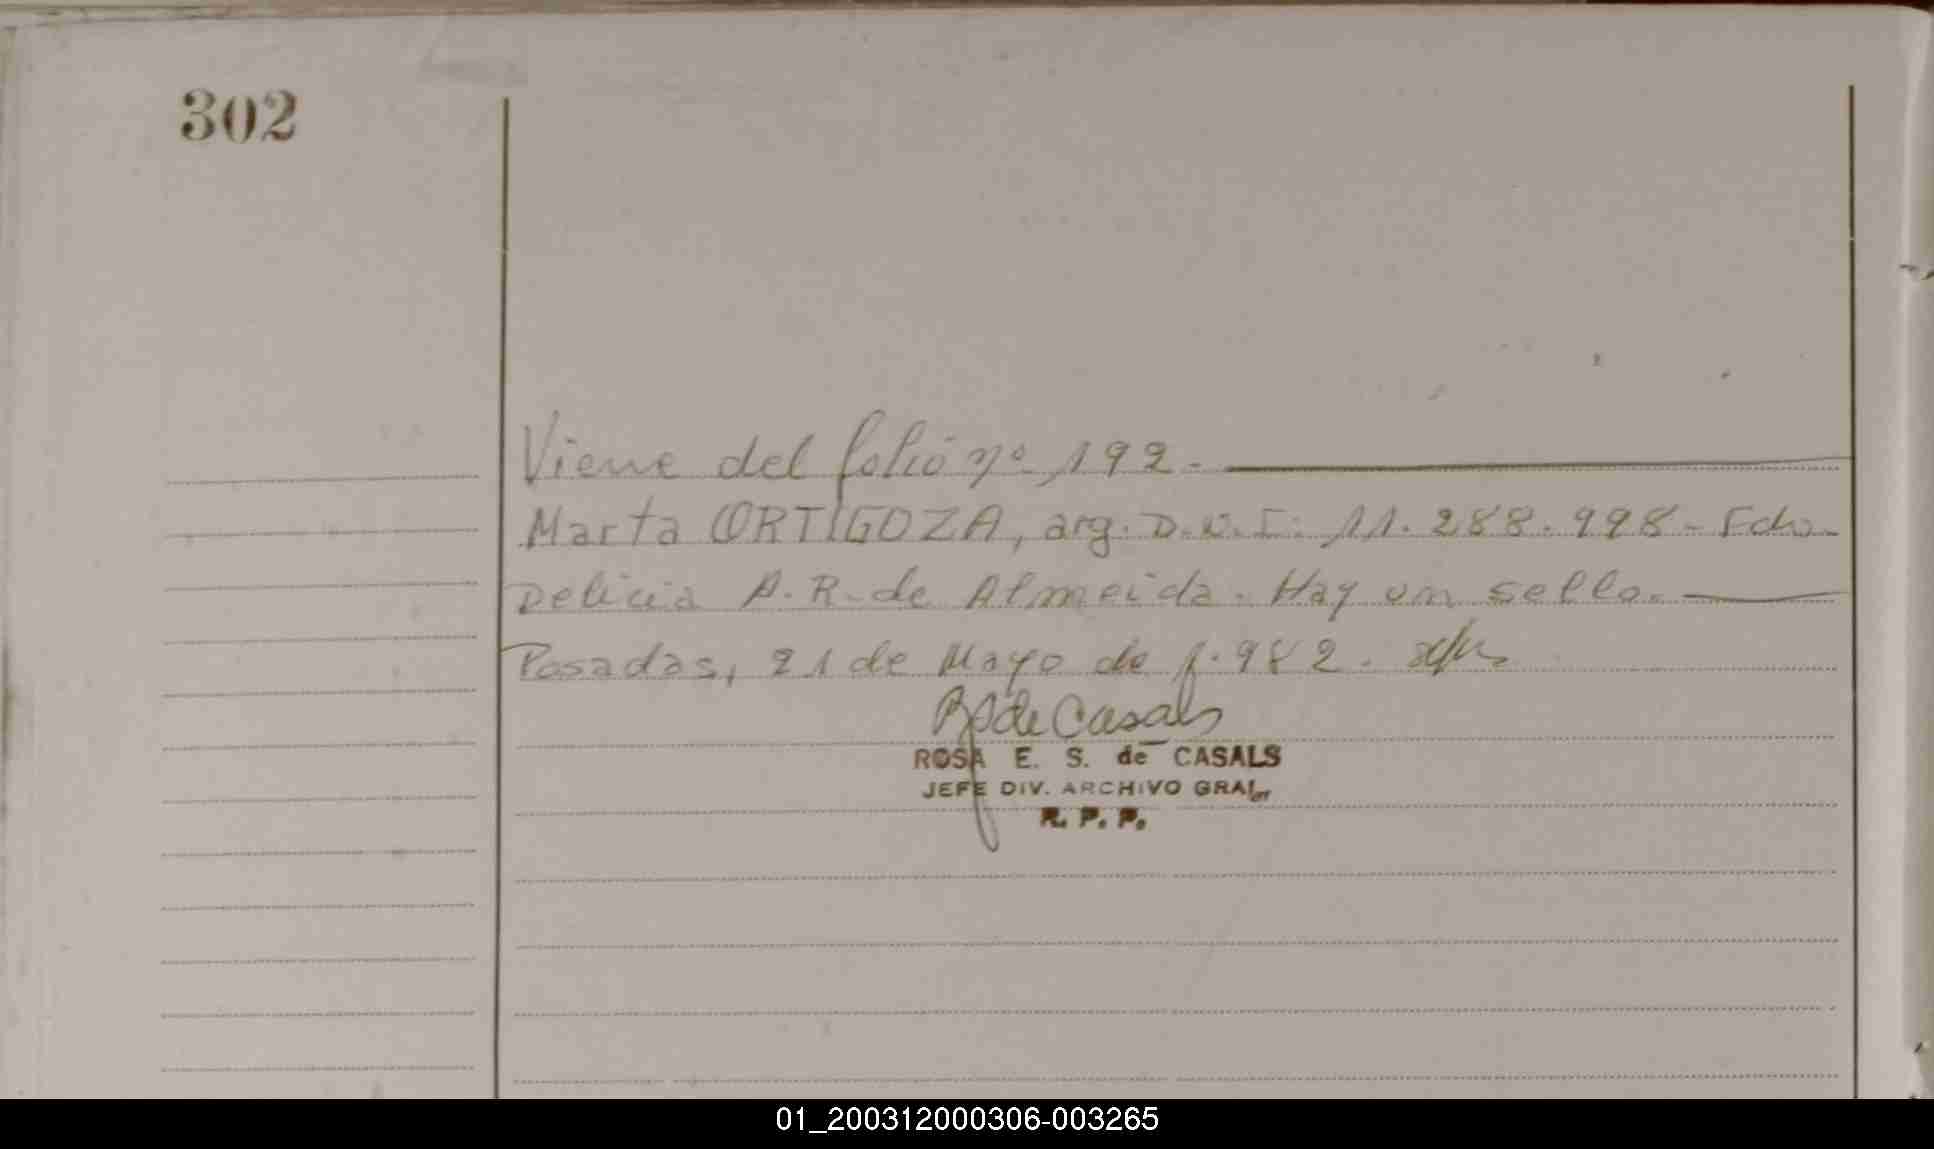 302
Viene del folio nº 192.
Marta ORTIGOZA, arg. D.N.I. 11.288.998 - Fdo.
Delicia A. R. de Almeida. Hay un sello.
Posadas, 21 de Mayo de 1.982.
RS de Casals
ROSA E. S. de CASALS
JEFE DIV. ARCHIVO GRAL
R. P. P.
01_200312000306-003265